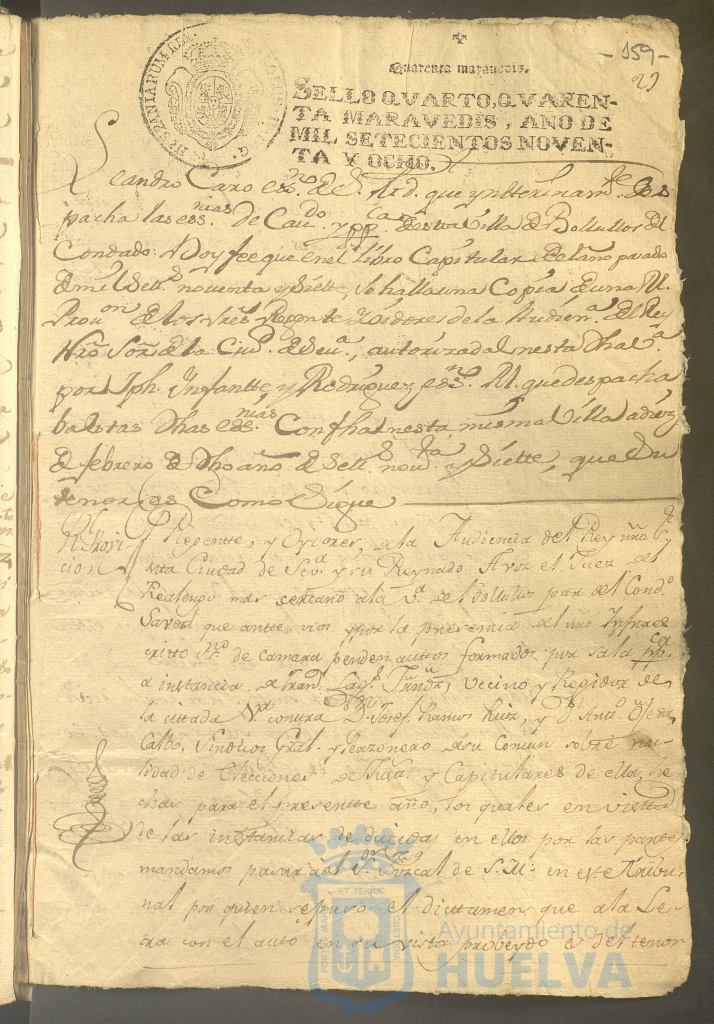 -159-
21
Quarenta marauedis.
SELLO QVARTO, QVAREN-
TA MARAVEDIS, AÑO DE
MIL SETECIENTOS NOVEN-
TA Y OCHO.
HISPANIARUM REX
Leandro Caro esno. de S. Md. que ynterinamte. Des
pacha las essnias. de Cavdo. y ppca. de esta Villa de Bollullos del
Condado: Doy fee que en el libro Capitular del año pasado
de mil Settos. noventa y Siette, se halla una Copia de una Rl.
Provon. de los Sres. Regente Oidores de la Audiena. del Rey
Ntro. Sor. de la Ciud. de Seva., autorizada en esta Dha. Va.
por Jph. Infantte y Rodriguez essno. Rl. que despacha
ba estas Dhas essnias. Con fha en esta misma Villa a diez
de febrero de Dho año de Settos. novta. y Siette, que Su
tenor es Como Sigue
Rl. Provi
cion
Regentte, y Oydores, de la Audiencia del Rey nro. Sr. de
esta Ciudad de Seva. y su Reynado A vos el Juez de
Realengo mas sercano a la Va. de Bollullos par del Condo.
Saved que antte nos y por la presencia del nro Infraes
cripto Sno. de camara penden auttos formados por sala ppca.
a instancia de Frando. Lags. , Vecino y Regidor de
la cittada Va. contra Dn. Josef Ramos Ruiz, y Dn. Anto.
Calbo, Sindicos Gral. y Perzonero de su Comun sobre nu
lidad de Elecciones de Justa. y Capitulares de ella, he
chas para el presentte año, los quales en vistta
de las instancias deducidas en ellos por las partes
mandamos pasar al Sor. Fiscal de S. M. en este Tribu
nal por quien se puso el dicttamen que a la Le
tra con el auto en su vista proveydo es del tenor
PORTUS MARIS ET TERRAE CUSTODIA
Ayuntamiento de
HUELVA